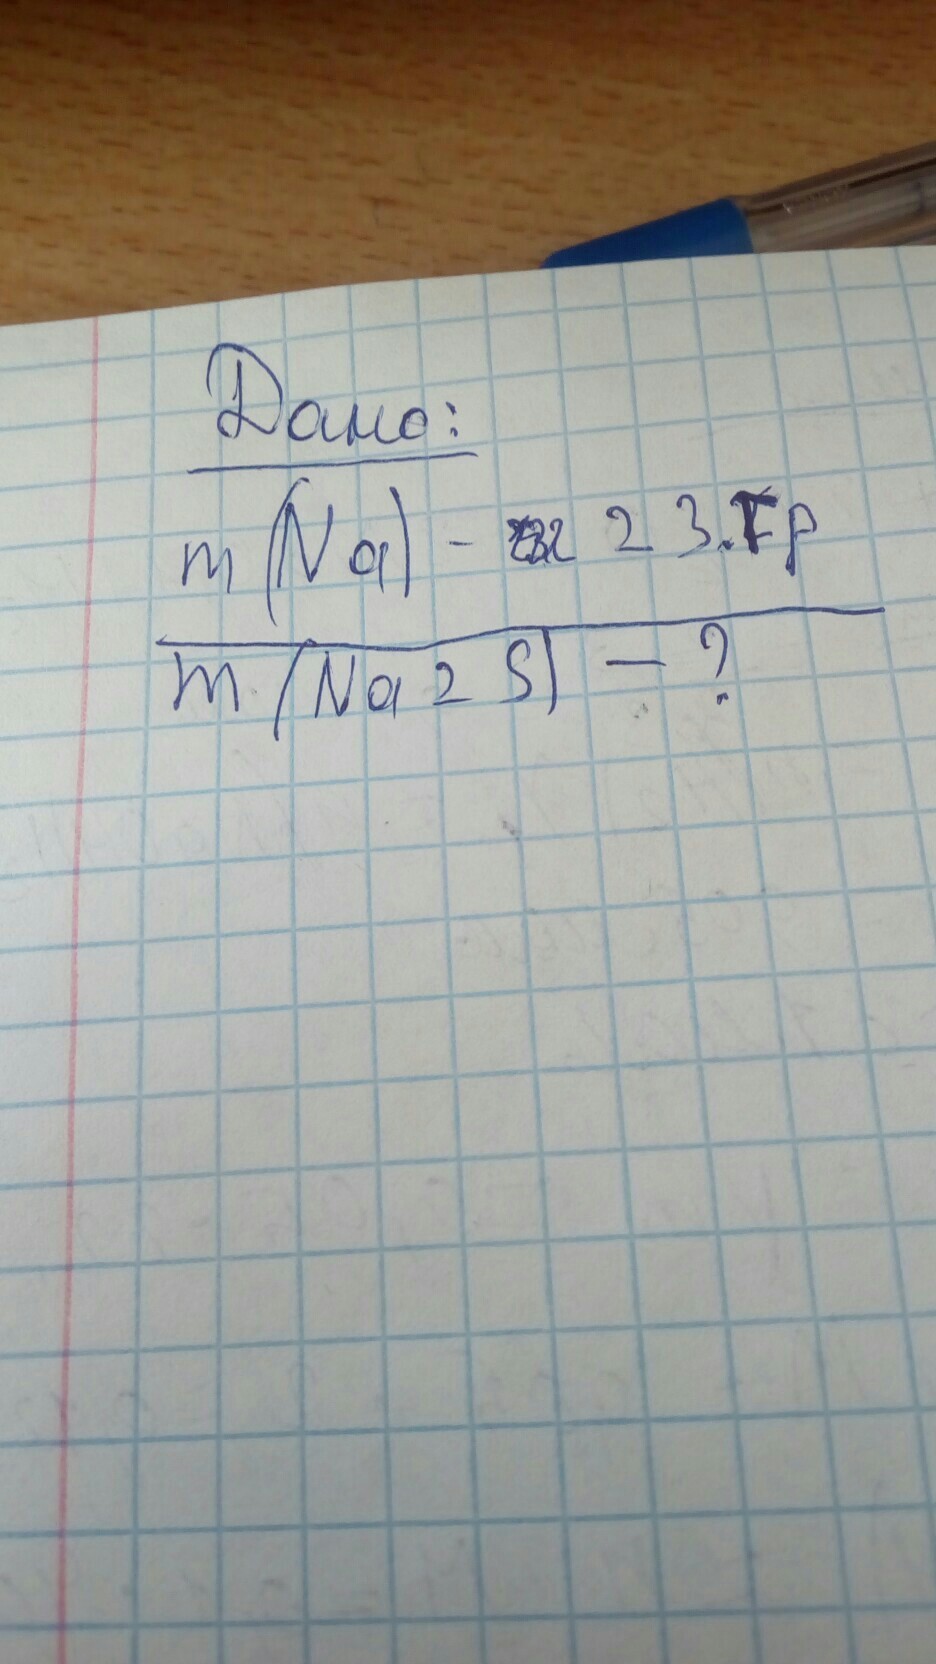 Дано:
m(Na) - 23.Гр
m(Na2S) - ?